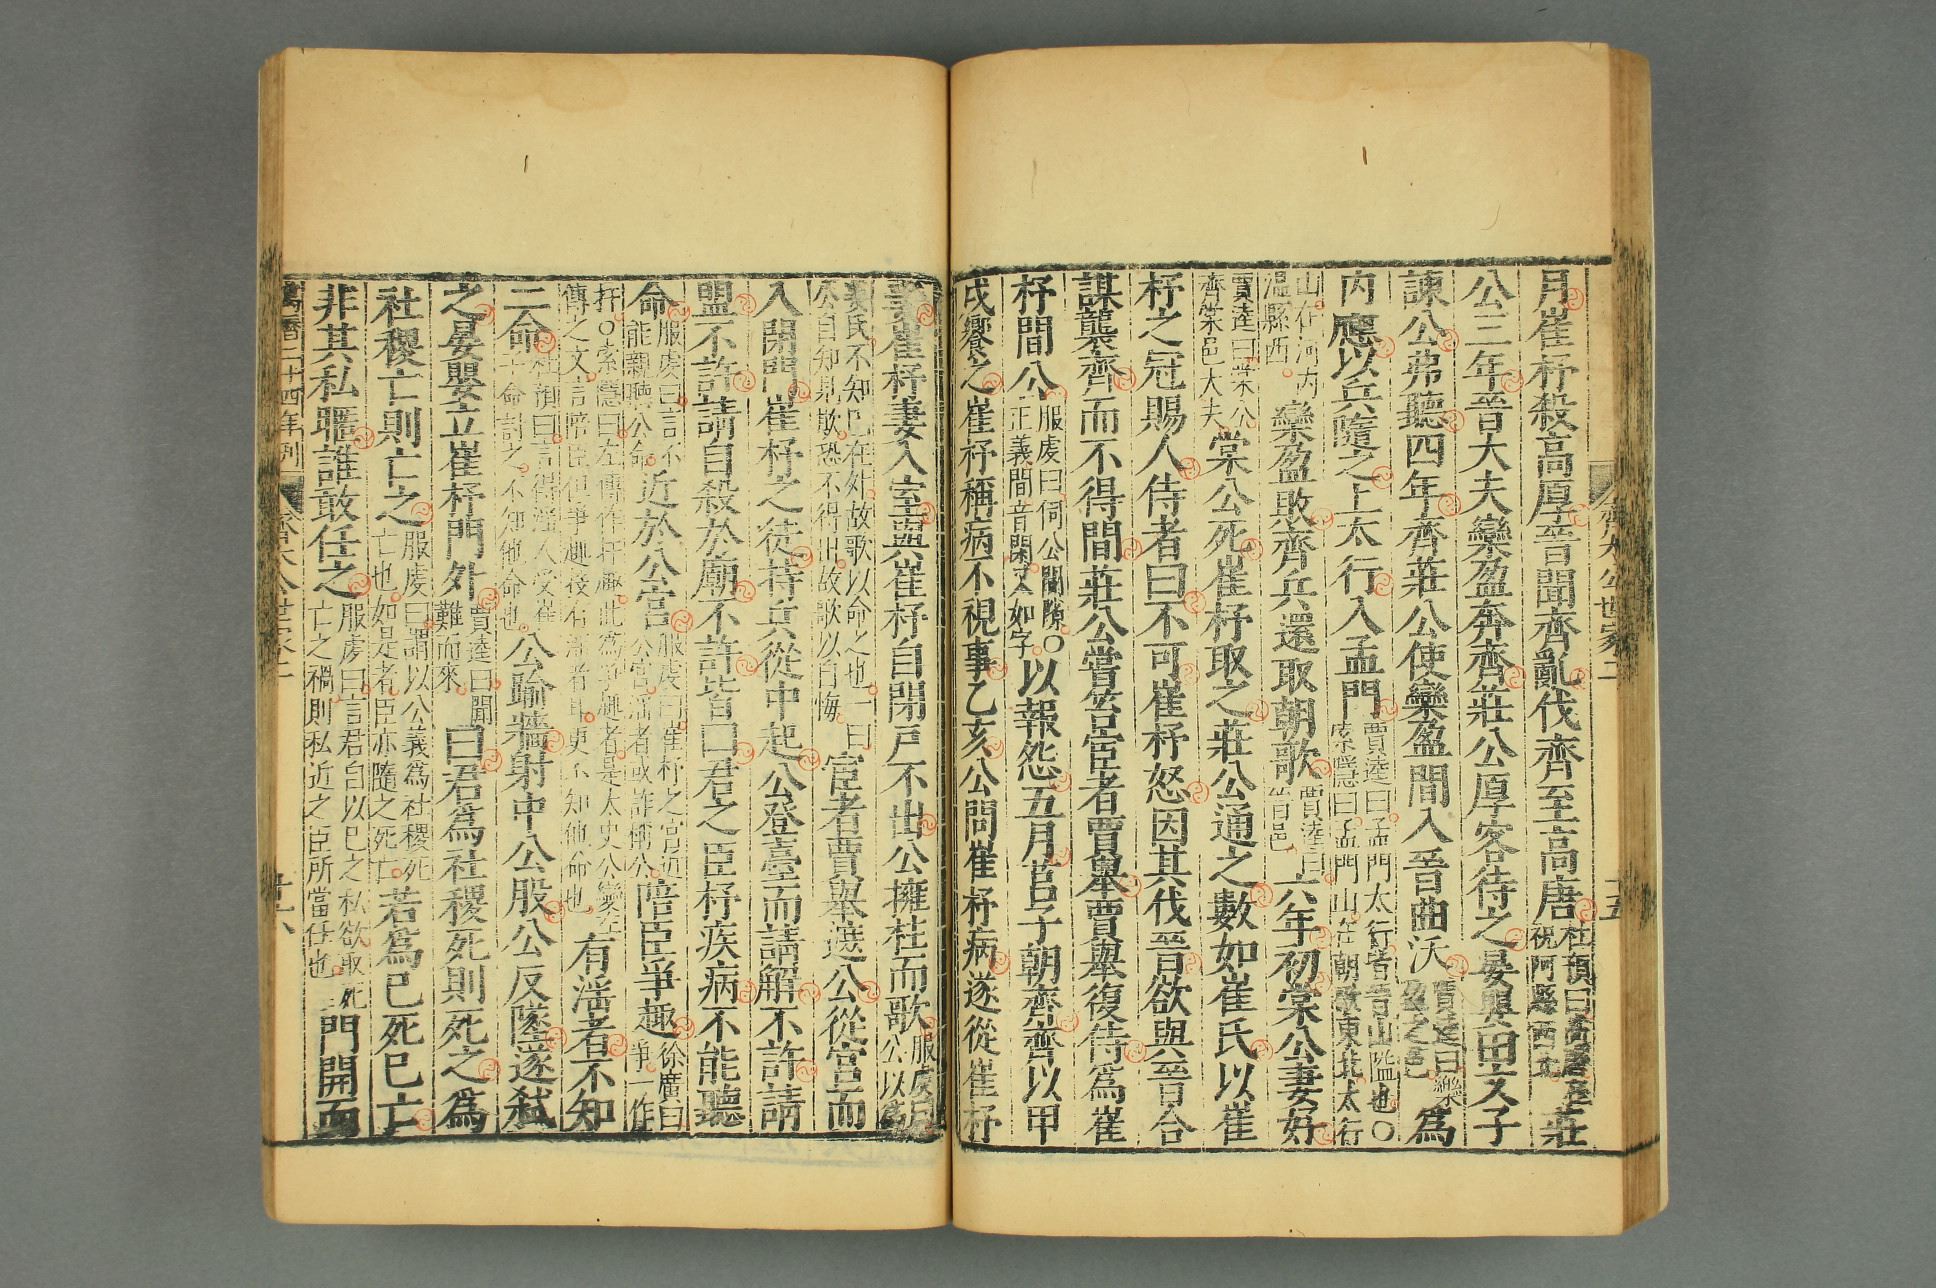 月崔杼殺高厚晉聞齊亂伐齊至高唐杜預曰高唐在祝阿縣西北莊
公三年晉大夫欒盈奔齊莊公厚客待之晏嬰田文子
諫公弗聽四年齊莊公使欒盈間入晉曲沃賈逵曰欒盈之邑為
內應以兵隨之上太行入孟門賈逵曰孟門太行皆晉山隘也○索隱曰孟門山在朝歌東北太行
山在河內溫縣西欒盈敗齊兵還取朝歌賈逵曰晉邑六年初棠公妻好
賈逵曰棠公齊棠邑大夫棠公死崔杼取之莊公通之數如崔氏以崔
杼之冠賜人侍者曰不可崔杼怒因其伐晉欲與晉合
謀襲齊而不得間莊公嘗笞宦者賈舉賈舉復侍為崔
杼間公服虔曰伺公間隙○正義間音閑又如字以報怨五月莒子朝齊齊以甲
戌饗之崔杼稱病不視事乙亥公問崔杼病遂從崔杼
妻崔杼妻入室與崔杼自閉戶不出公擁柱而歌服虔曰公以為
姜氏不知己在外故歌以命之也一曰公自知見欺恐不得出故歌以自悔宦者賈舉遮公從官而
入閉門崔杼之徒持兵從中起公登臺而請解不許請
盟不許請自殺於廟不許皆曰君之臣杼疾病不能聽
命服虔曰言不能親聽公命近於公宮服虔曰崔杼之宮近公宮淫者或詐稱公陪臣爭趣徐廣曰爭一作
扞○索隱曰左傳作扞趣此為爭趣者是太史公變左傳之文言陪臣但爭趣投有淫者耳更不知他命也有淫者不知
二命杜預曰言得淫人受崔子命討之不知他命也公踰牆射中公股公反墜遂弒
之晏嬰立崔杼門外賈逵曰聞難而來曰君為社稷死則死之為
社稷亡則亡之服虔曰謂以公義為社稷死亡也如是者臣亦隨之死亡若為己死己亡
非其私暱誰敢任之服虔曰言君自以己之私欲取死亡之禍則私近之臣所當任也門開而
萬曆二十四年刊